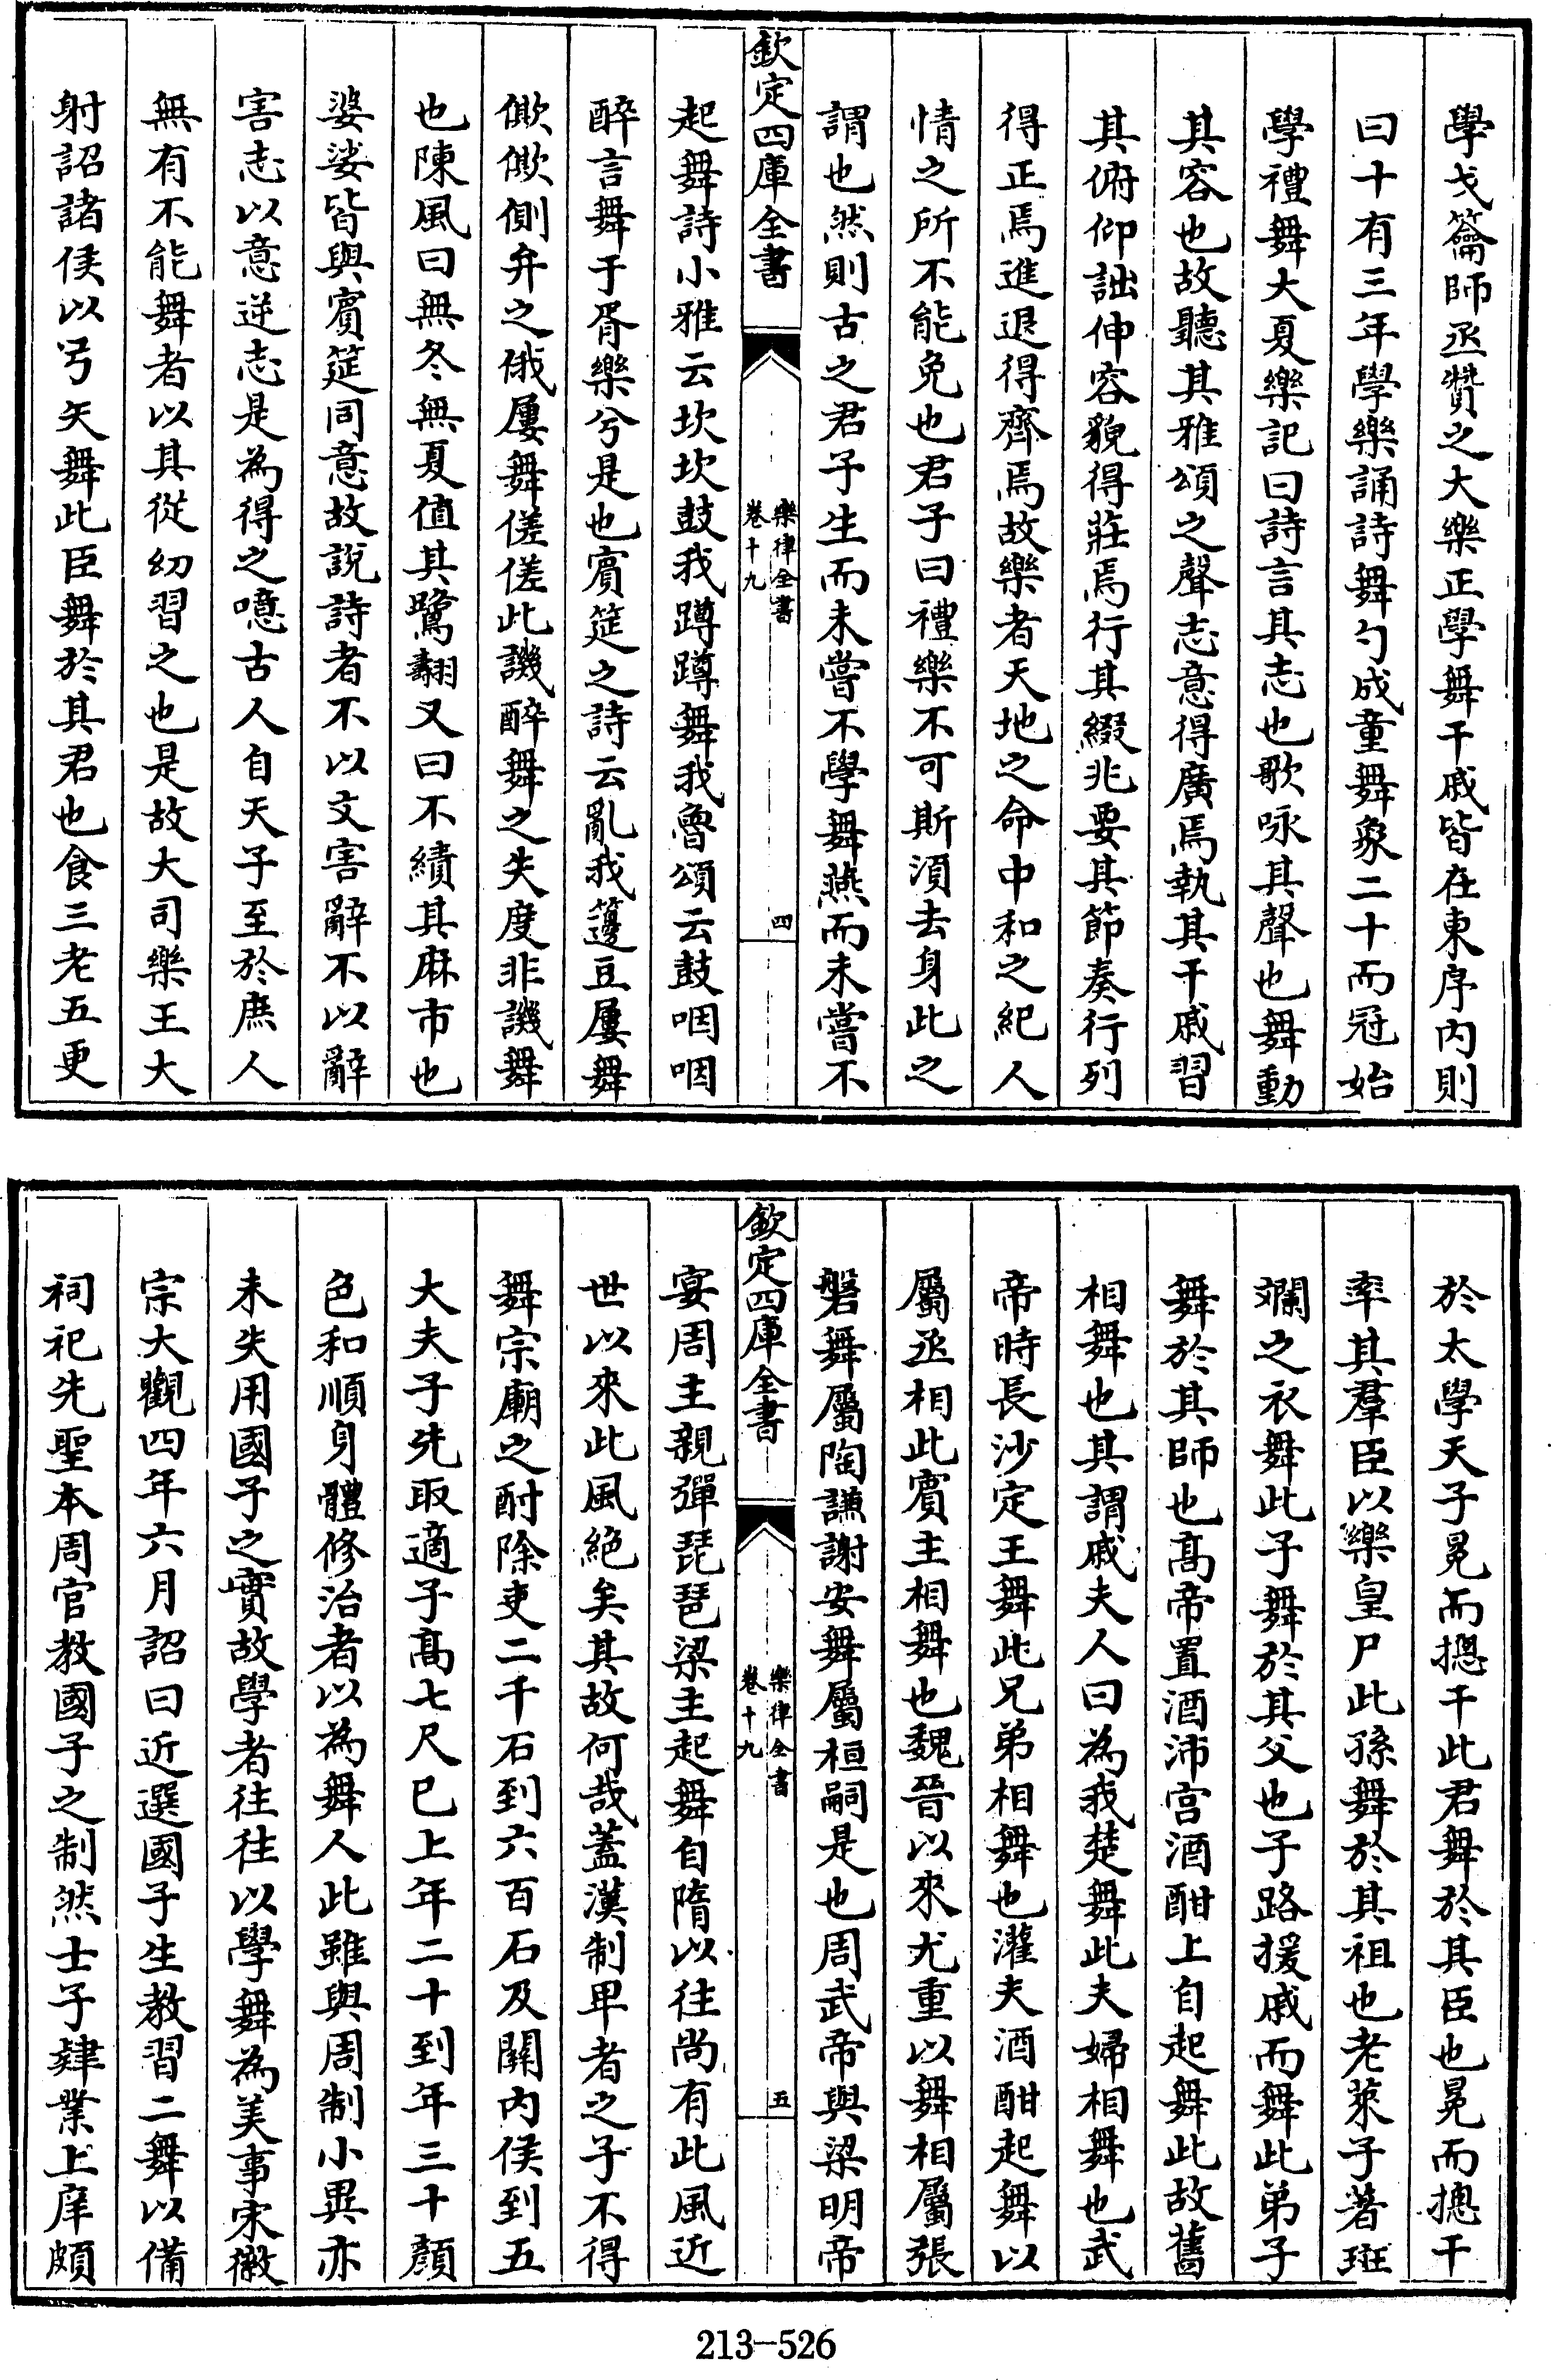 學戈籥師丞贊之大樂正學舞干戚皆在東序內則
曰十有三年學樂誦詩舞勺成童舞象二十而冠始
學禮舞大夏樂記曰詩言其志也歌咏其聲也舞動
其容也故聽其雅頌之聲志意得廣焉執其干戚習
其俯仰詘伸容貌得莊焉行其綴兆要其節奏行列
得正焉進退得齊焉故樂者天地之命中和之紀人
情之所不能免也君子曰禮樂不可斯須去身此之
謂也然則古之君子生而未嘗不學舞燕而未嘗不
欽定四庫全書
樂律全書
卷十九
四
起舞詩小雅云坎坎鼓我蹲蹲舞我魯頌云鼓咽咽
醉言舞于胥樂兮是也賓筵之詩云亂我籩豆屢舞
僛僛側弁之俄屢舞傞傞此譏醉舞之失度非譏舞
也陳風曰無冬無夏值其鷺翿又曰不績其麻市也
婆娑皆與賓筵同意故說詩者不以文害辭不以辭
害志以意逆志是為得之噫古人自天子至於庶人
無有不能舞者以其從幼習之也是故大司樂王大
射詔諸侯以弓矢舞此臣舞於其君也食三老五更
於太學天子冕而摠干此君舞於其臣也冕而摠干
率其羣臣以樂皇尸此孫舞於其祖也老萊子著斑
斕之衣舞此子舞於其父也子路援戚而舞此弟子
舞於其師也高帝置酒沛宫酒酣上自起舞此故舊
相舞也其謂戚夫人曰為我楚舞此夫婦相舞也武
帝時長沙定王舞此兄弟相舞也灌夫酒酣起舞以
屬丞相此賓主相舞也魏晉以來尤重以舞相屬張
磐舞屬陶謙謝安舞屬桓嗣是也周武帝與梁明帝
欽定四庫全書
樂律全書
卷十九
五
宴周主親彈琵琶梁主起舞自隋以往尚有此風近
世以來此風絕矣其故何哉蓋漢制卑者之子不得
舞宗廟之酎除吏二千石到六百石及關內侯到五
大夫子先取適子高七尺已上年二十到年三十顏
色和順身體修治者以為舞人此雖與周制小異亦
未失用國子之實故學者往往以學舞為美事宋徽
宗大觀四年六月詔曰近選國子生教習二舞以備
祠祀先聖本周官教國子之制然士子肄業上庠頗
213-526